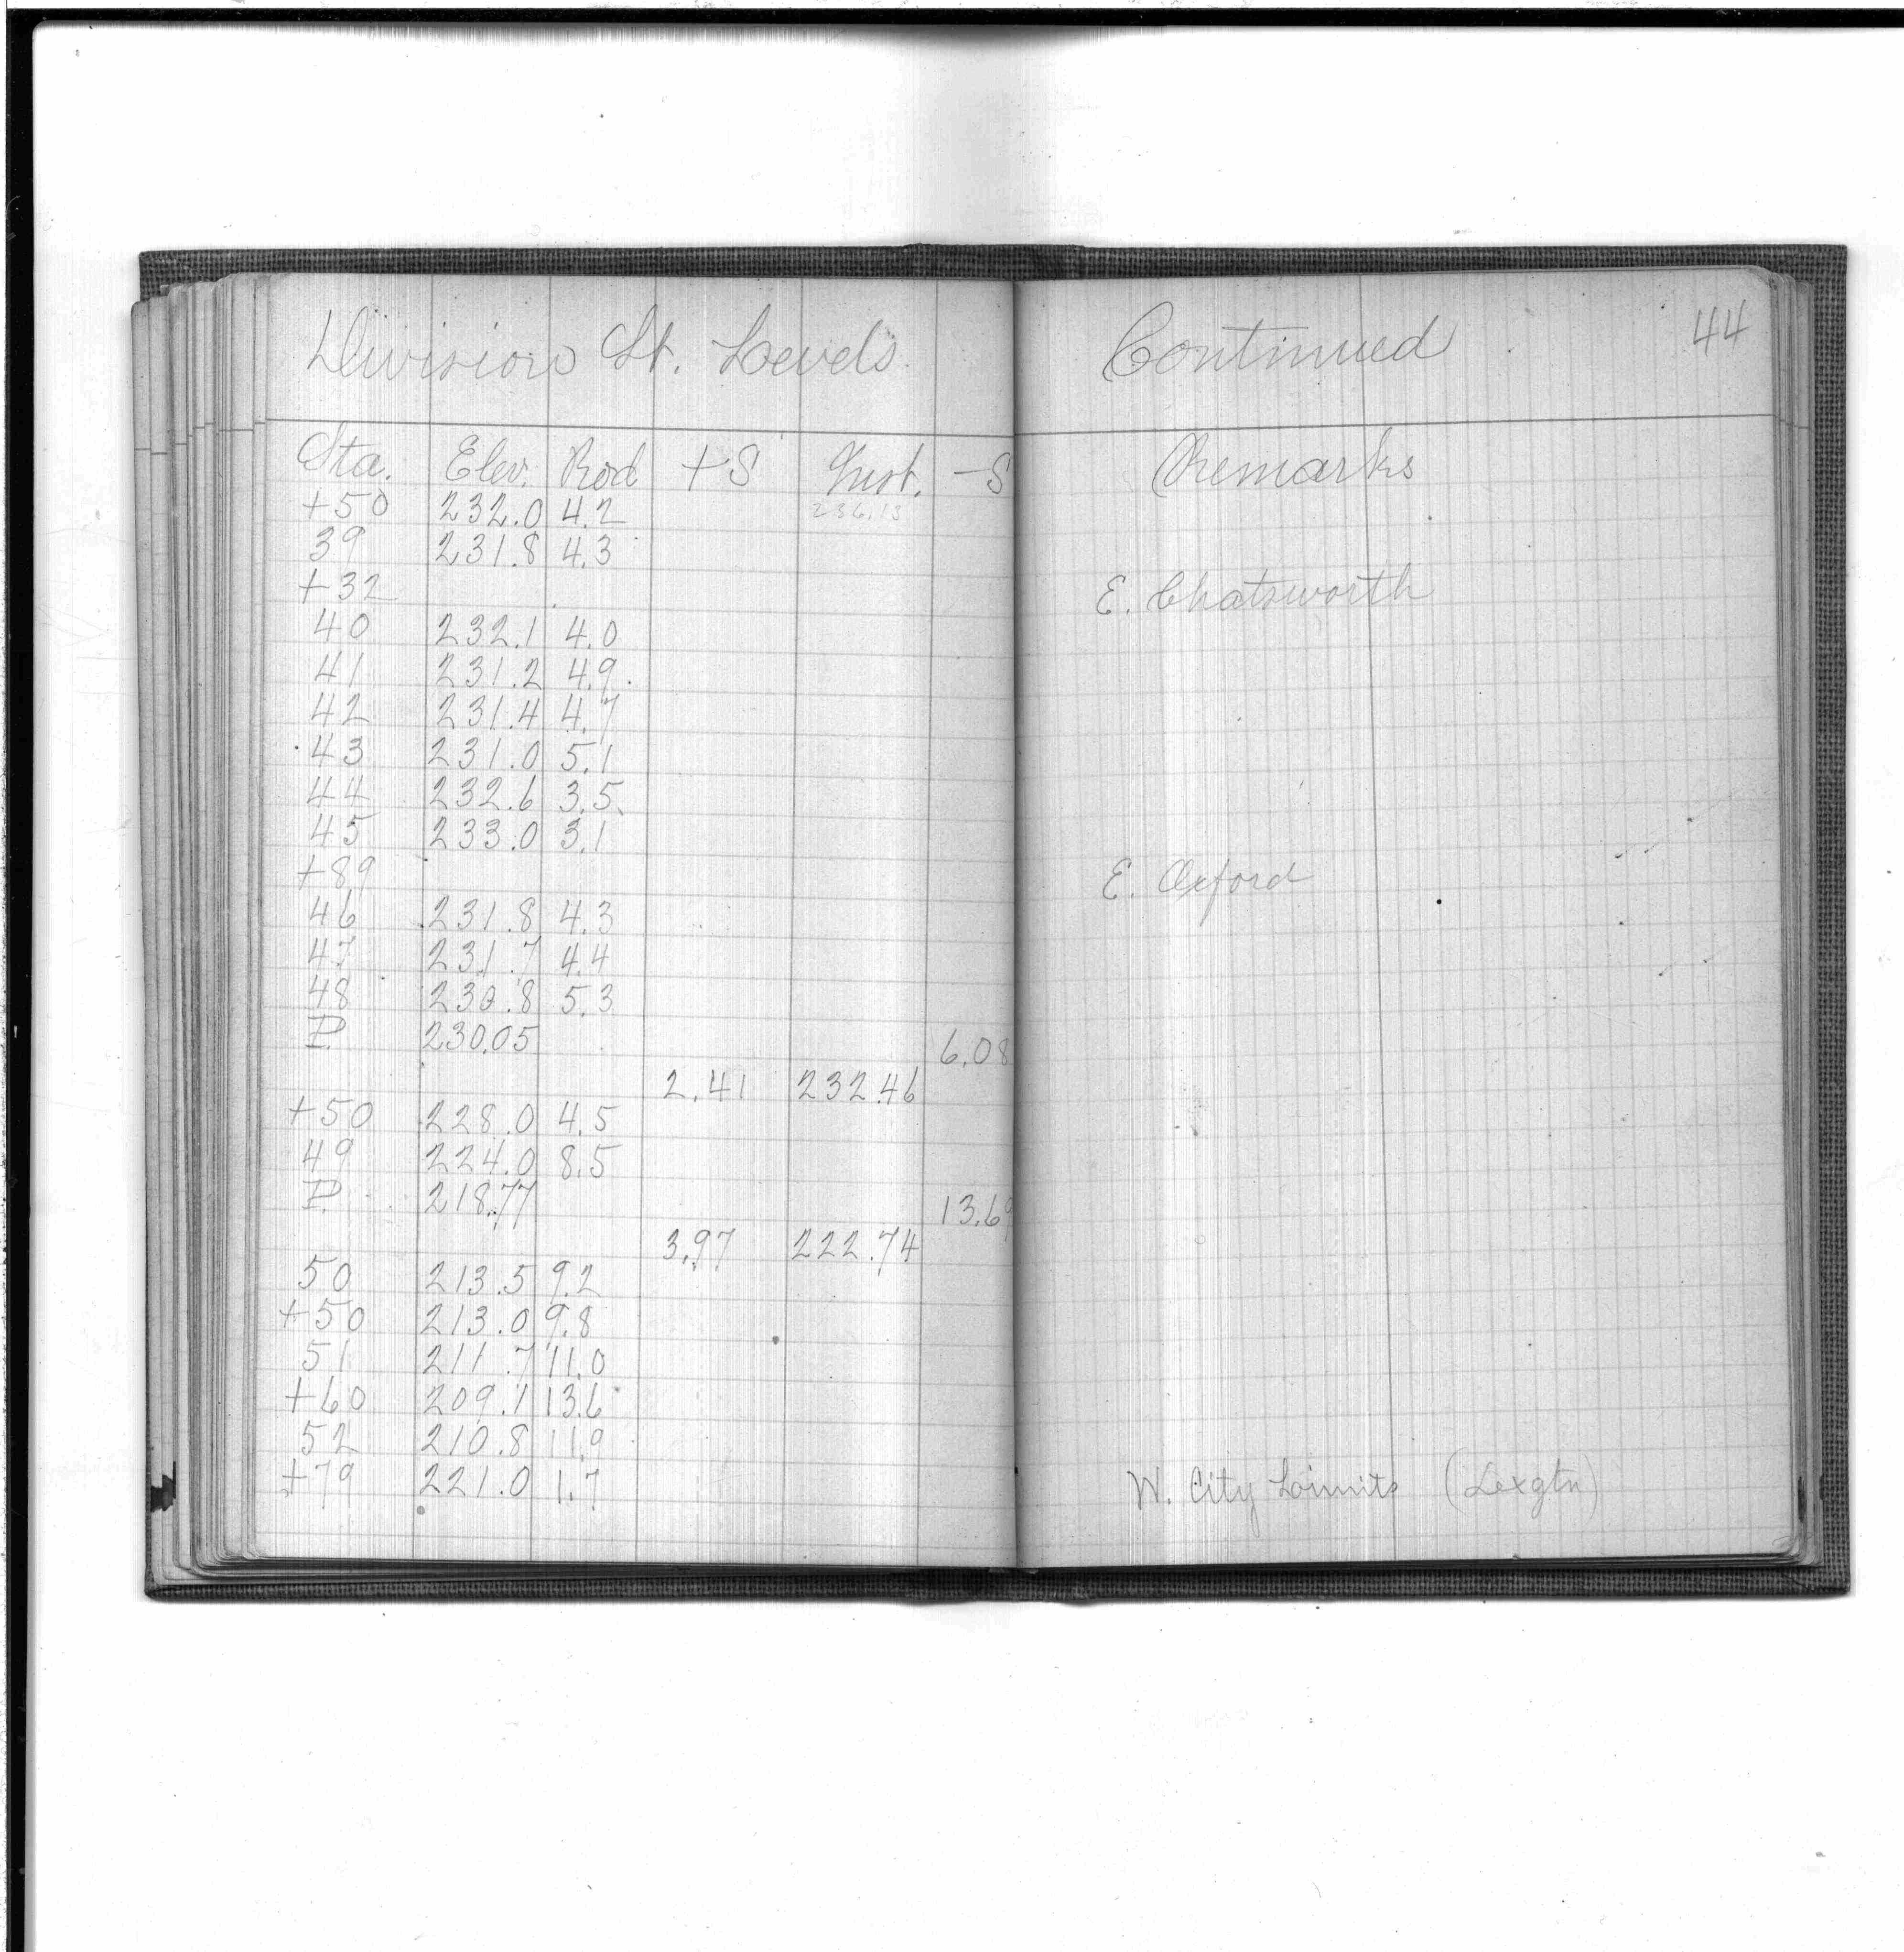 Division St. Levels. Continued 44
Sta. Elev. Rod +S Inst. -S Remarks
+50 232.0 4.2 236.13
39 231.8 4.3
+32 E. Chatsworth
40 232.1 4.0
41 231.2 4.9
42 231.4 4.7
43 231.0 5.1
44 232.6 3.5
45 233.0 3.1
+89 E. Oxford
46 231.8 4.3
47 231.7 4.4
48 230.8 5.3
P. 230.05 6.08
2.41 232.46
+50 228.0 4.5
49 224.0 8.5
P. 218.77 13.69
3.97 222.74
50 213.5 9.2
+50 213.0 9.8
51 211.7 11.0
+60 209.1 13.6
52 210.8 11.9
+79 221.0 1.7 W. City Limits (Lexgtn)